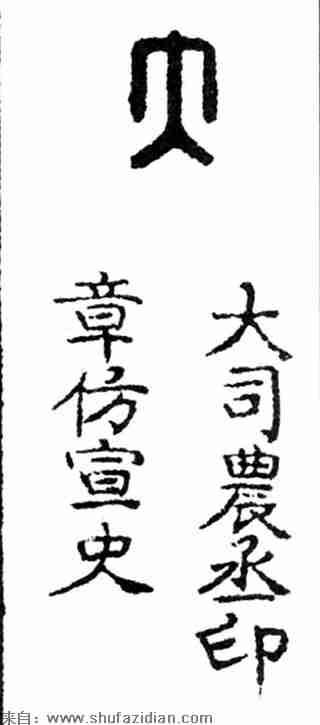 大
大司農丞印
章仿宣史
来自：www.shufazidian.com